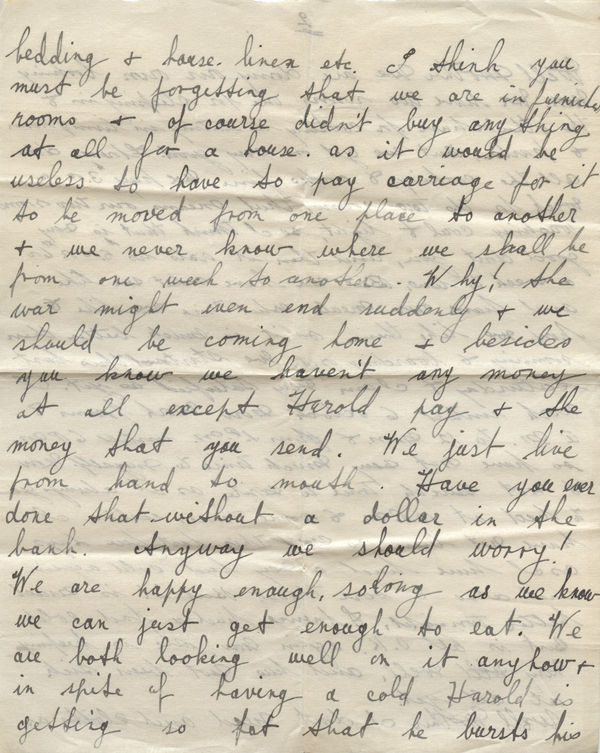 bedding & house. linen etc. I think you
must be forgetting that we are in furnished
rooms & of course didn't buy any thing
at all for a house. as it would be
useless to have to pay carriage for it
to be moved from one place to another
& we never know where we shall be
from one week to another. Why! the
war might even end suddenly & we
should be coming home & besides
you know we haven't any money
at all except Harold pay & the
money that you send. We just live
from hand to mouth. Have you ever
done that without a dollar in the
bank. Anyway we should worry!
We are happy enough, so long as we know
we can just get enough to eat. We
are both looking well on it anyhow &
in spite of having a cold Harold is
getting so fat that he bursts his